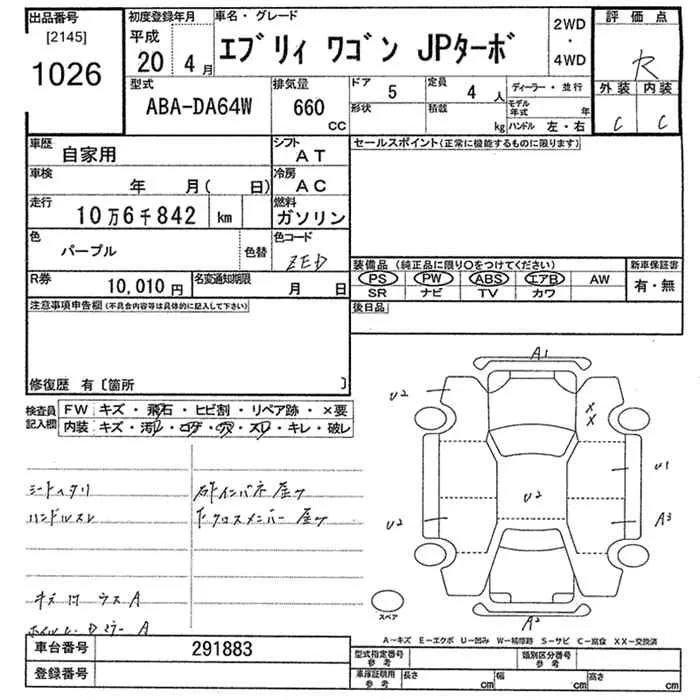 出品番号
[2145]
1026
初度登録年月
平成
20 4月
車名・グレード
エブリィ ワゴン JPターボ
2WD
・
4WD
評価点
R
外装 内装
C C
型式
ABA-DA64W
排気量
660
CC
ドア 5
定員 4 人
形状
積載 kg
ディーラー・並行
モデル年式 年
ハンドル 左・右
車歴 自家用
シフト AT
セールスポイント(正常に機能するものに限ります)
車検 年 月( 日)
冷房 AC
走行 10万6千842 km
燃料 ガソリン
色 パープル 色替
色コード ZED
装備品 (純正品に限り○をつけてください)
新車保証書
PS PW ABS エアB AW
有・無
SR ナビ TV カワ
R券 10,010円
名変通知期限 月 日
後日品
注意事項申告欄(不具合内容等は具体的に記入して下さい)
修復歴 有〔箇所 〕
検査員記入欄
FW キズ・飛石・ヒビ割・リペア跡・×要
内装 キズ・汚レ・コゲ・穴・スレ・キレ・破レ
シートヘタリ
ハンドルスレ
右インパネ歪み
下クロスメンバー歪み
A1
U2
XX
U1
U2
U2
A3
A2
スペア
A-キズ E-エクボ U-凹み W-補修跡 S-サビ C-腐食 XX-交換済
車台番号 291883
登録番号
型式指定番号 参考
類別区分番号 参考
車庫証明用 参考
長さ cm
幅 cm
高さ cm